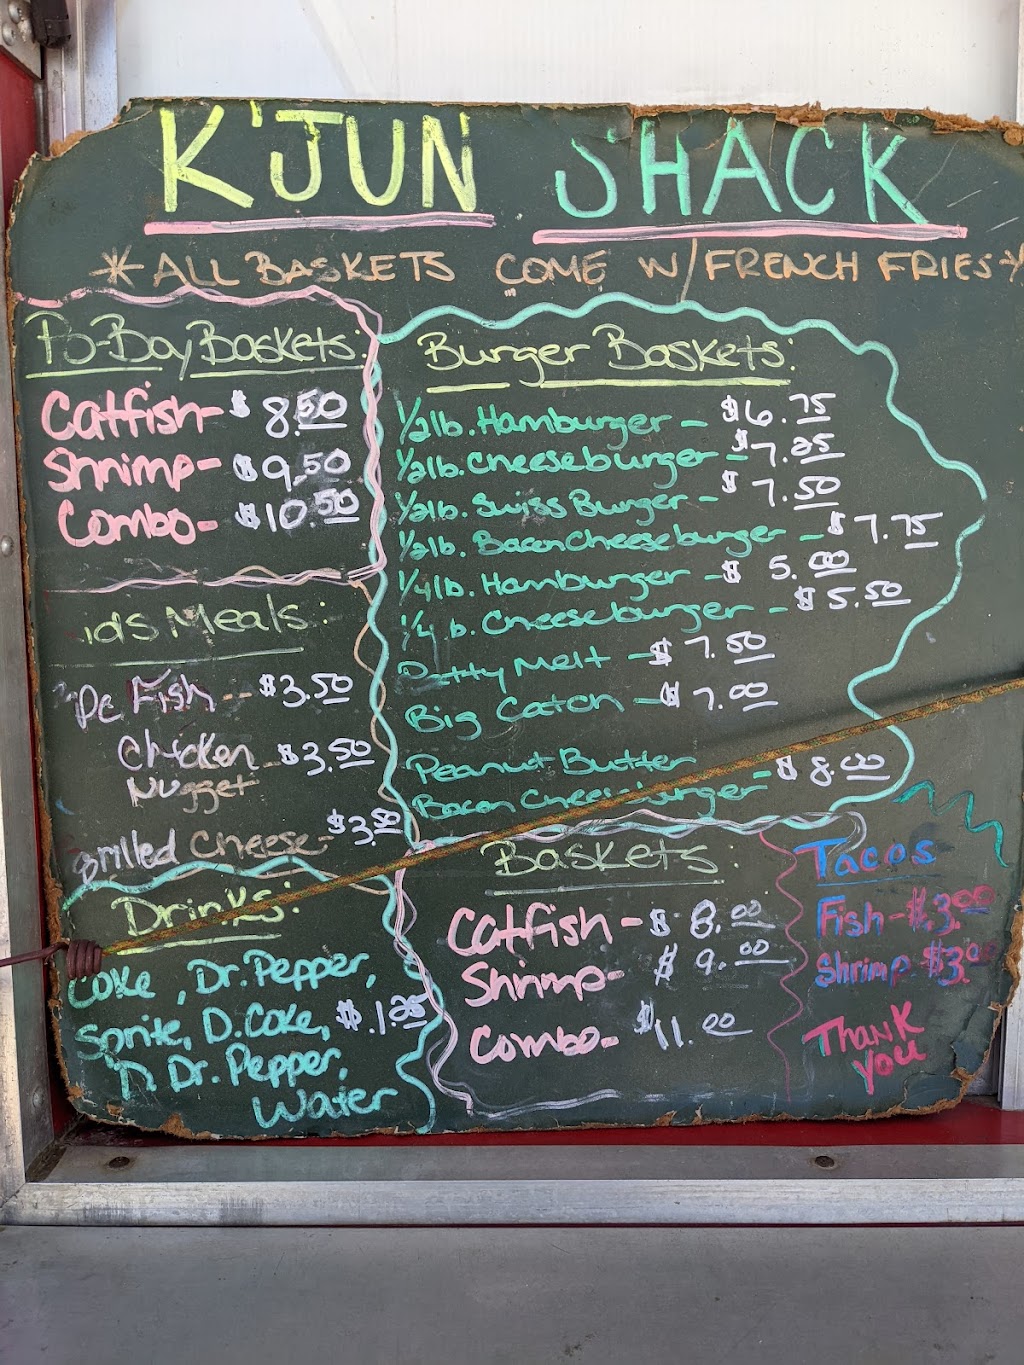 K'JUN SHACK
*ALL BASKETS COME W/ FRENCH FRIES*
Po-Boy Baskets:
Catfish- $8.50
Shrimp- $9.50
Combo- $10.50
ids Meals:
Pc Fish -- $3.50
Chicken
Nugget -- $3.50
Grilled Cheese- $3.50
Drinks:
Coke, Dr. Pepper,
Sprite, D. Coke, $1.25
D. Dr. Pepper,
Water
Burger Baskets:
1/2 lb. Hamburger - $6.75
1/2 lb. Cheeseburger - $7.25
1/2 lb. Swiss Burger - $7.50
1/2 lb. Bacon Cheeseburger - $7.75
1/4 lb. Hamburger - $5.00
1/4 lb. Cheeseburger - $5.50
Patty Melt - $7.50
Big Caton - $7.00
Peanut Butter
Bacon Cheeseburger - $8.00
Baskets:
Catfish - $8.00
Shrimp- $9.00
Combo- $11.00
Tacos
Fish- $3.00
Shrimp $3.00
Thank
you